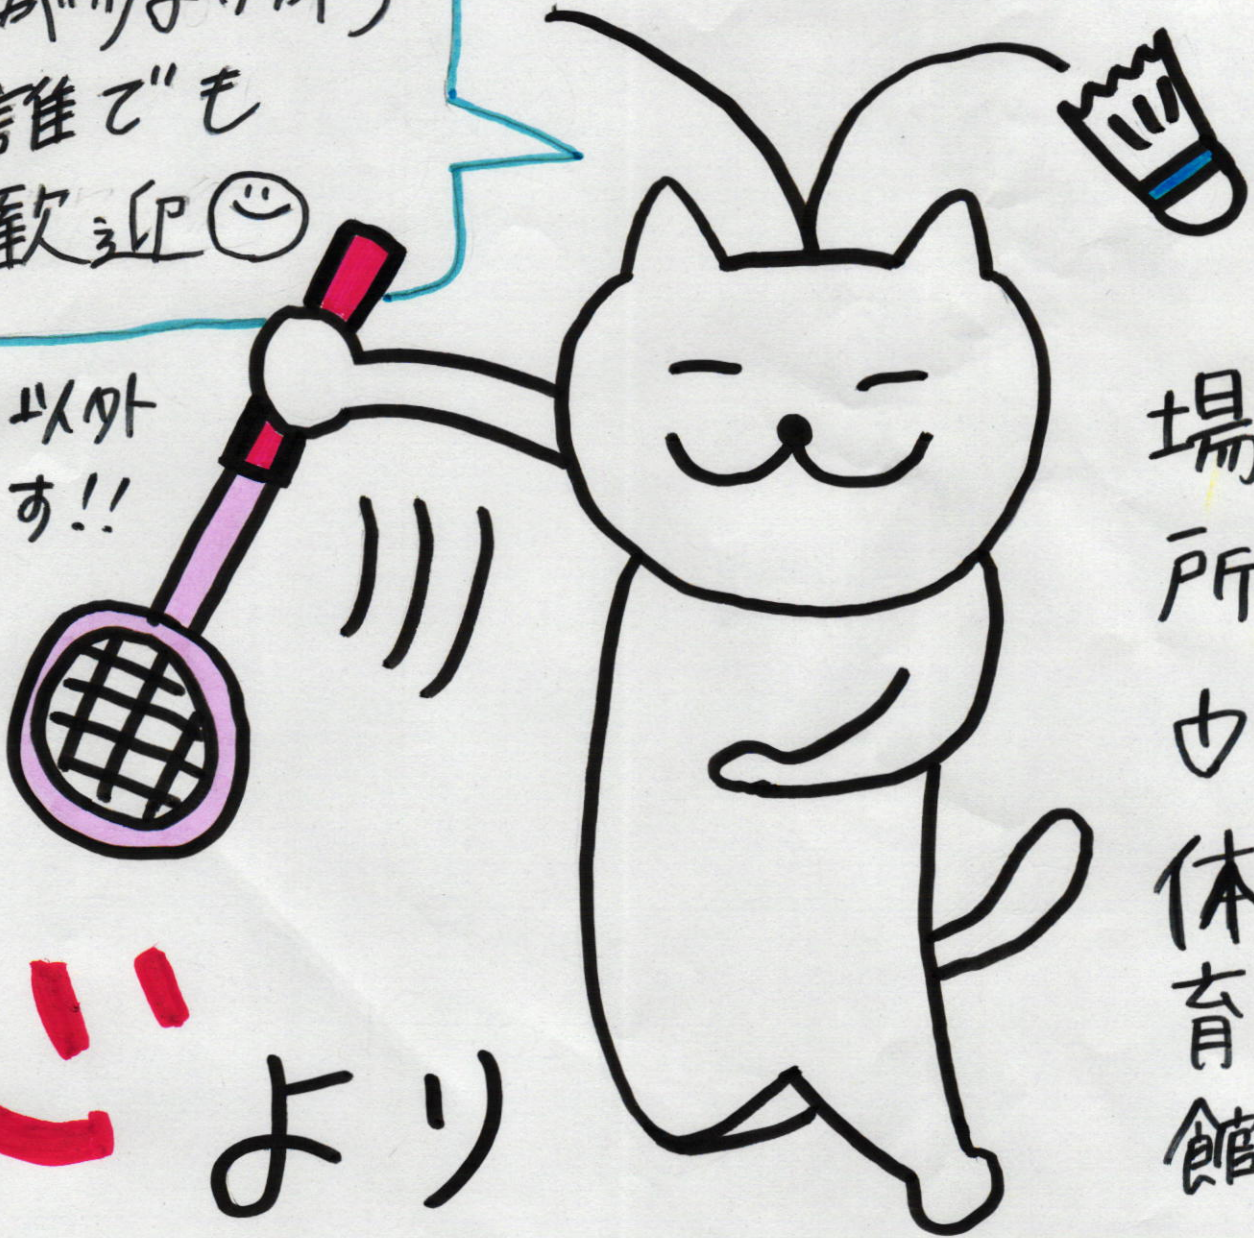 誰でも
歓迎
以外
す!!
より
場所
体育館